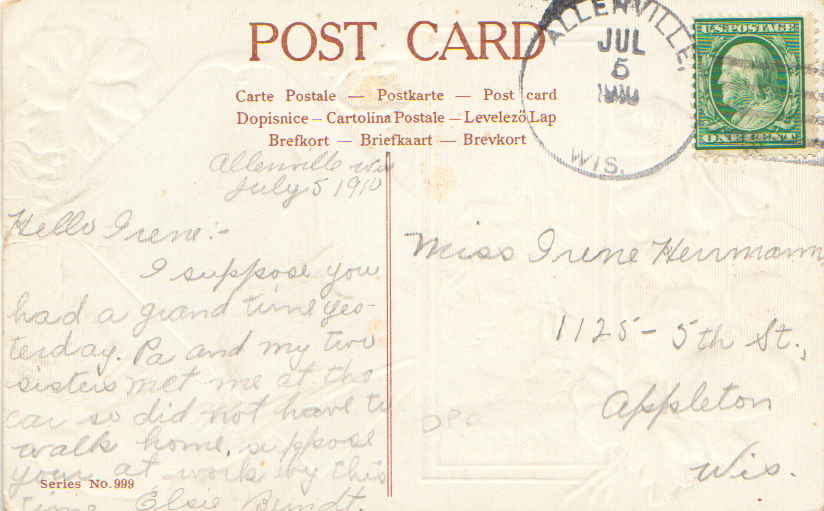 POST CARD
Carte Postale — Postkarte — Post card
Dopisnice — Cartolina Postale — Levelező Lap
Brefkort — Briefkaart — Brevkort
ALLENVILLE,
JUL
5
WIS.
U.S. POSTAGE
ONE CENT
Allenville Wis
July 5 1910
Hello Irene:-
I suppose you
had a grand time yes-
terday. Pa and my two
sisters met me at the
car so did not have to
walk home, suppose
your at work by this
time Elsie Bundt.
Series No. 999
Miss Irene Herrmann,
1125- 5th St.,
Appleton
Wis.
OPC